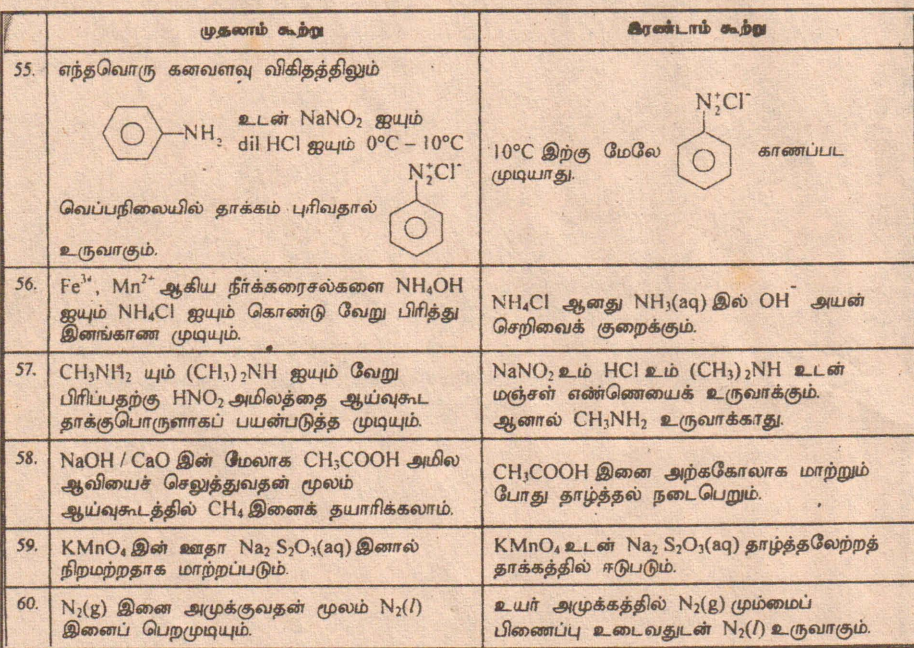 முதலாம் கூற்று
இரண்டாம் கூற்று
55. எந்தவொரு கனவளவு விகிதத்திலும்
NH₂ உடன் NaNO₂ ஐயும்
dil HCl ஐயும் 0°C – 10°C
N₂⁺Cl⁻
வெப்பநிலையில் தாக்கம் புரிவதால்
உருவாகும்.
N₂⁺Cl⁻
10°C இற்கு மேலே காணப்பட
முடியாது.
56. Fe³⁺, Mn²⁺ ஆகிய நீர்க்கரைசல்களை NH₄OH
ஐயும் NH₄Cl ஐயும் கொண்டு வேறு பிரித்து
இனங்காண முடியும்.
NH₄Cl ஆனது NH₃(aq) இல் OH⁻ அயன்
செறிவைக் குறைக்கும்.
57. CH₃NH₂ யும் (CH₃)₂NH ஐயும் வேறு
பிரிப்பதற்கு HNO₂ அமிலத்தை ஆய்வுகூட
தாக்குபொருளாகப் பயன்படுத்த முடியும்.
NaNO₂ உம் HCl உம் (CH₃)₂NH உடன்
மஞ்சள் எண்ணெயைக் உருவாக்கும்.
ஆனால் CH₃NH₂ உருவாக்காது.
58. NaOH / CaO இன் மேலாக CH₃COOH அமில
ஆவியைச் செலுத்துவதன் மூலம்
ஆய்வுகூடத்தில் CH₄ இனைக் தயாரிக்கலாம்.
CH₃COOH இனை அற்ககோலாக மாற்றும்
போது தாழ்த்தல் நடைபெறும்.
59. KMnO₄ இன் ஊதா Na₂ S₂O₃(aq) இனால்
நிறமற்றதாக மாற்றப்படும்.
KMnO₄ உடன் Na₂ S₂O₃(aq) தாழ்த்தலேற்றத்
தாக்கத்தில் ஈடுபடும்.
60. N₂(g) இனை அமுக்குவதன் மூலம் N₂(l)
இனைப் பெறமுடியும்.
உயர் அமுக்கத்தில் N₂(g) மும்மைப்
பிணைப்பு உடைவதுடன் N₂(l) உருவாகும்.